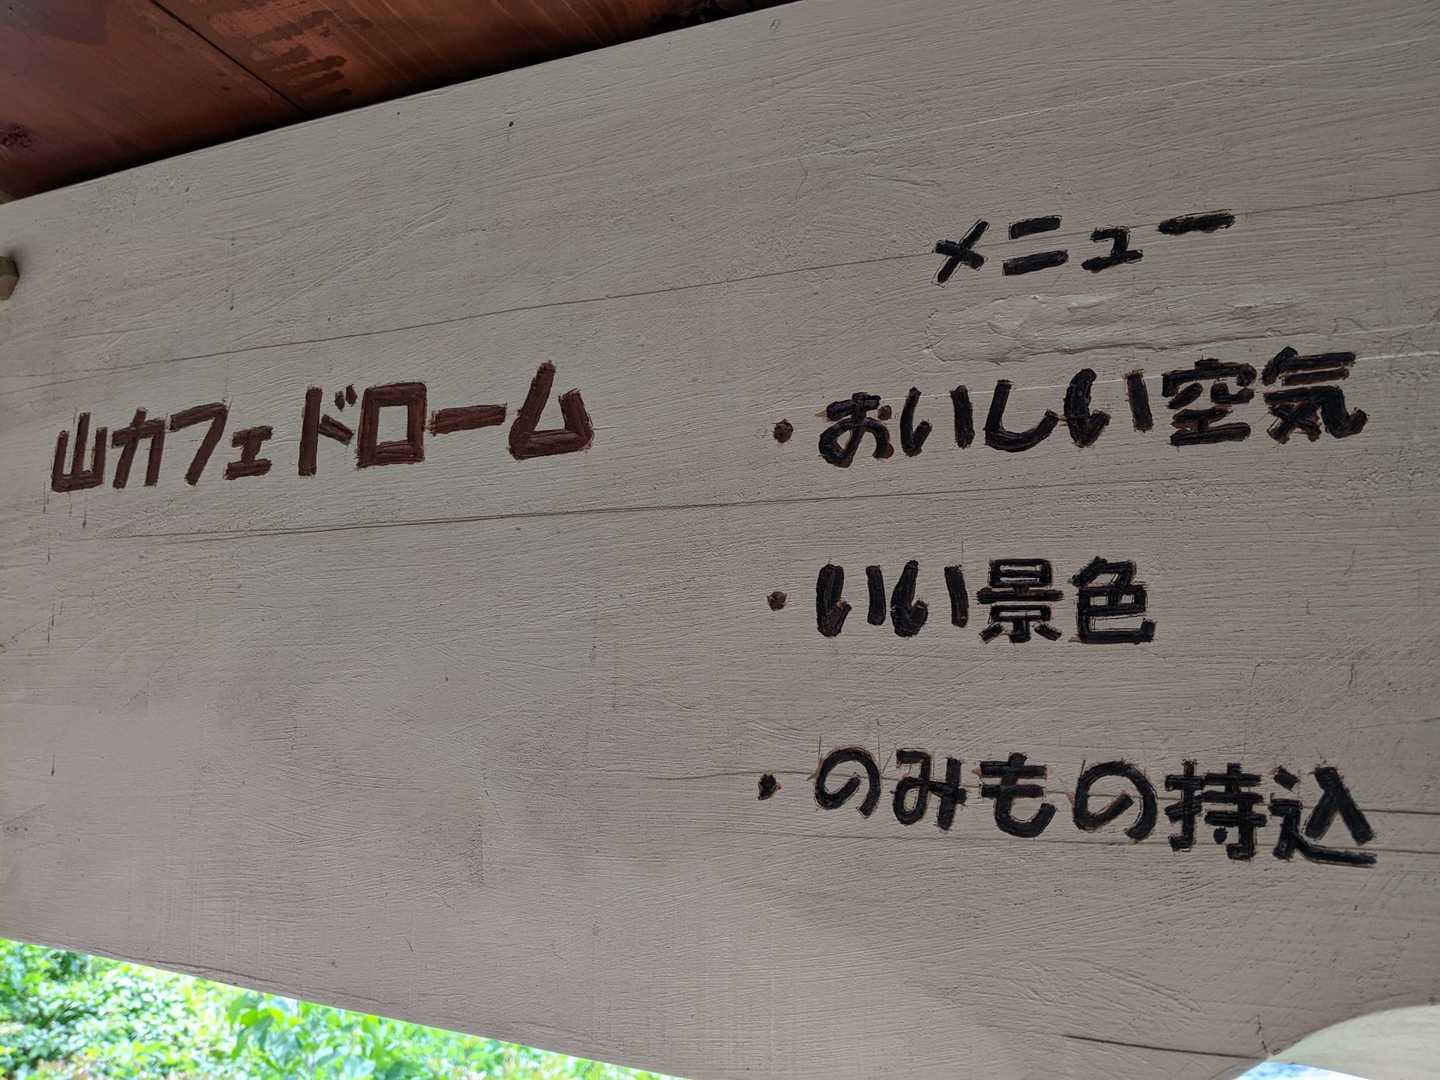 山カフェドローム
メニュー
・おいしい空気
・いい景色
・のみもの持込